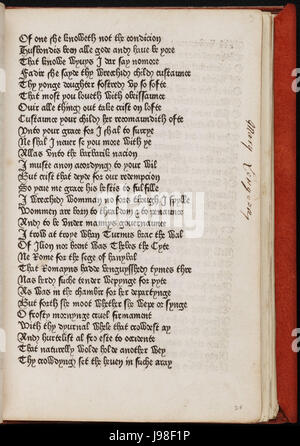 Of one she knoweth not the condicion
Husbondes ben alle gode and haue be yore
That knowe Wyuys I dar say nomore
Fadir she sayde thy Wrechidy childy custaunce
Thy yonge doughter fostredy vp so softe
That most you loueth With obeissaunce
Ouir alle thingy out take crist on lofte
Custaunce your childy her recomaundith ofte
Vnto your grace for I shal to surrye
Ne shal I neuer se you more With ye
Allas vnto the barbarik nacion
I muste anon accordyngy to your Wil
But crist that deyde for our redempcion
So yeue me grace his hestis to ful fille
I Wrechidy Womman no fors though I spylle
Wommen are born to thraldomy to penaunce
Andy to be vnder mannys gouernaunce
I troW at troye Whan Turnus brac the Wal
Of Ilion nor brent Was Thebes the Cyte
Ne Rome for the sege of hanybal
That Romayns hadde venquysshedy tymes thre
Nas herdy suche tender Wepynge for pyte
As Was in the chambir for her departynge
But forth she moot Whether she Wepe or synge
O frosty mornynge cruel firmament
With thy dyurnal WheLe that croWdest ay
Andy hurtelist al fro este to occidente
That naturelly Wolde holde another Wey
Thy croWdyngy set the heuen in suche aray
a
alamy
Image ID: J98F1P
www.alamy.com